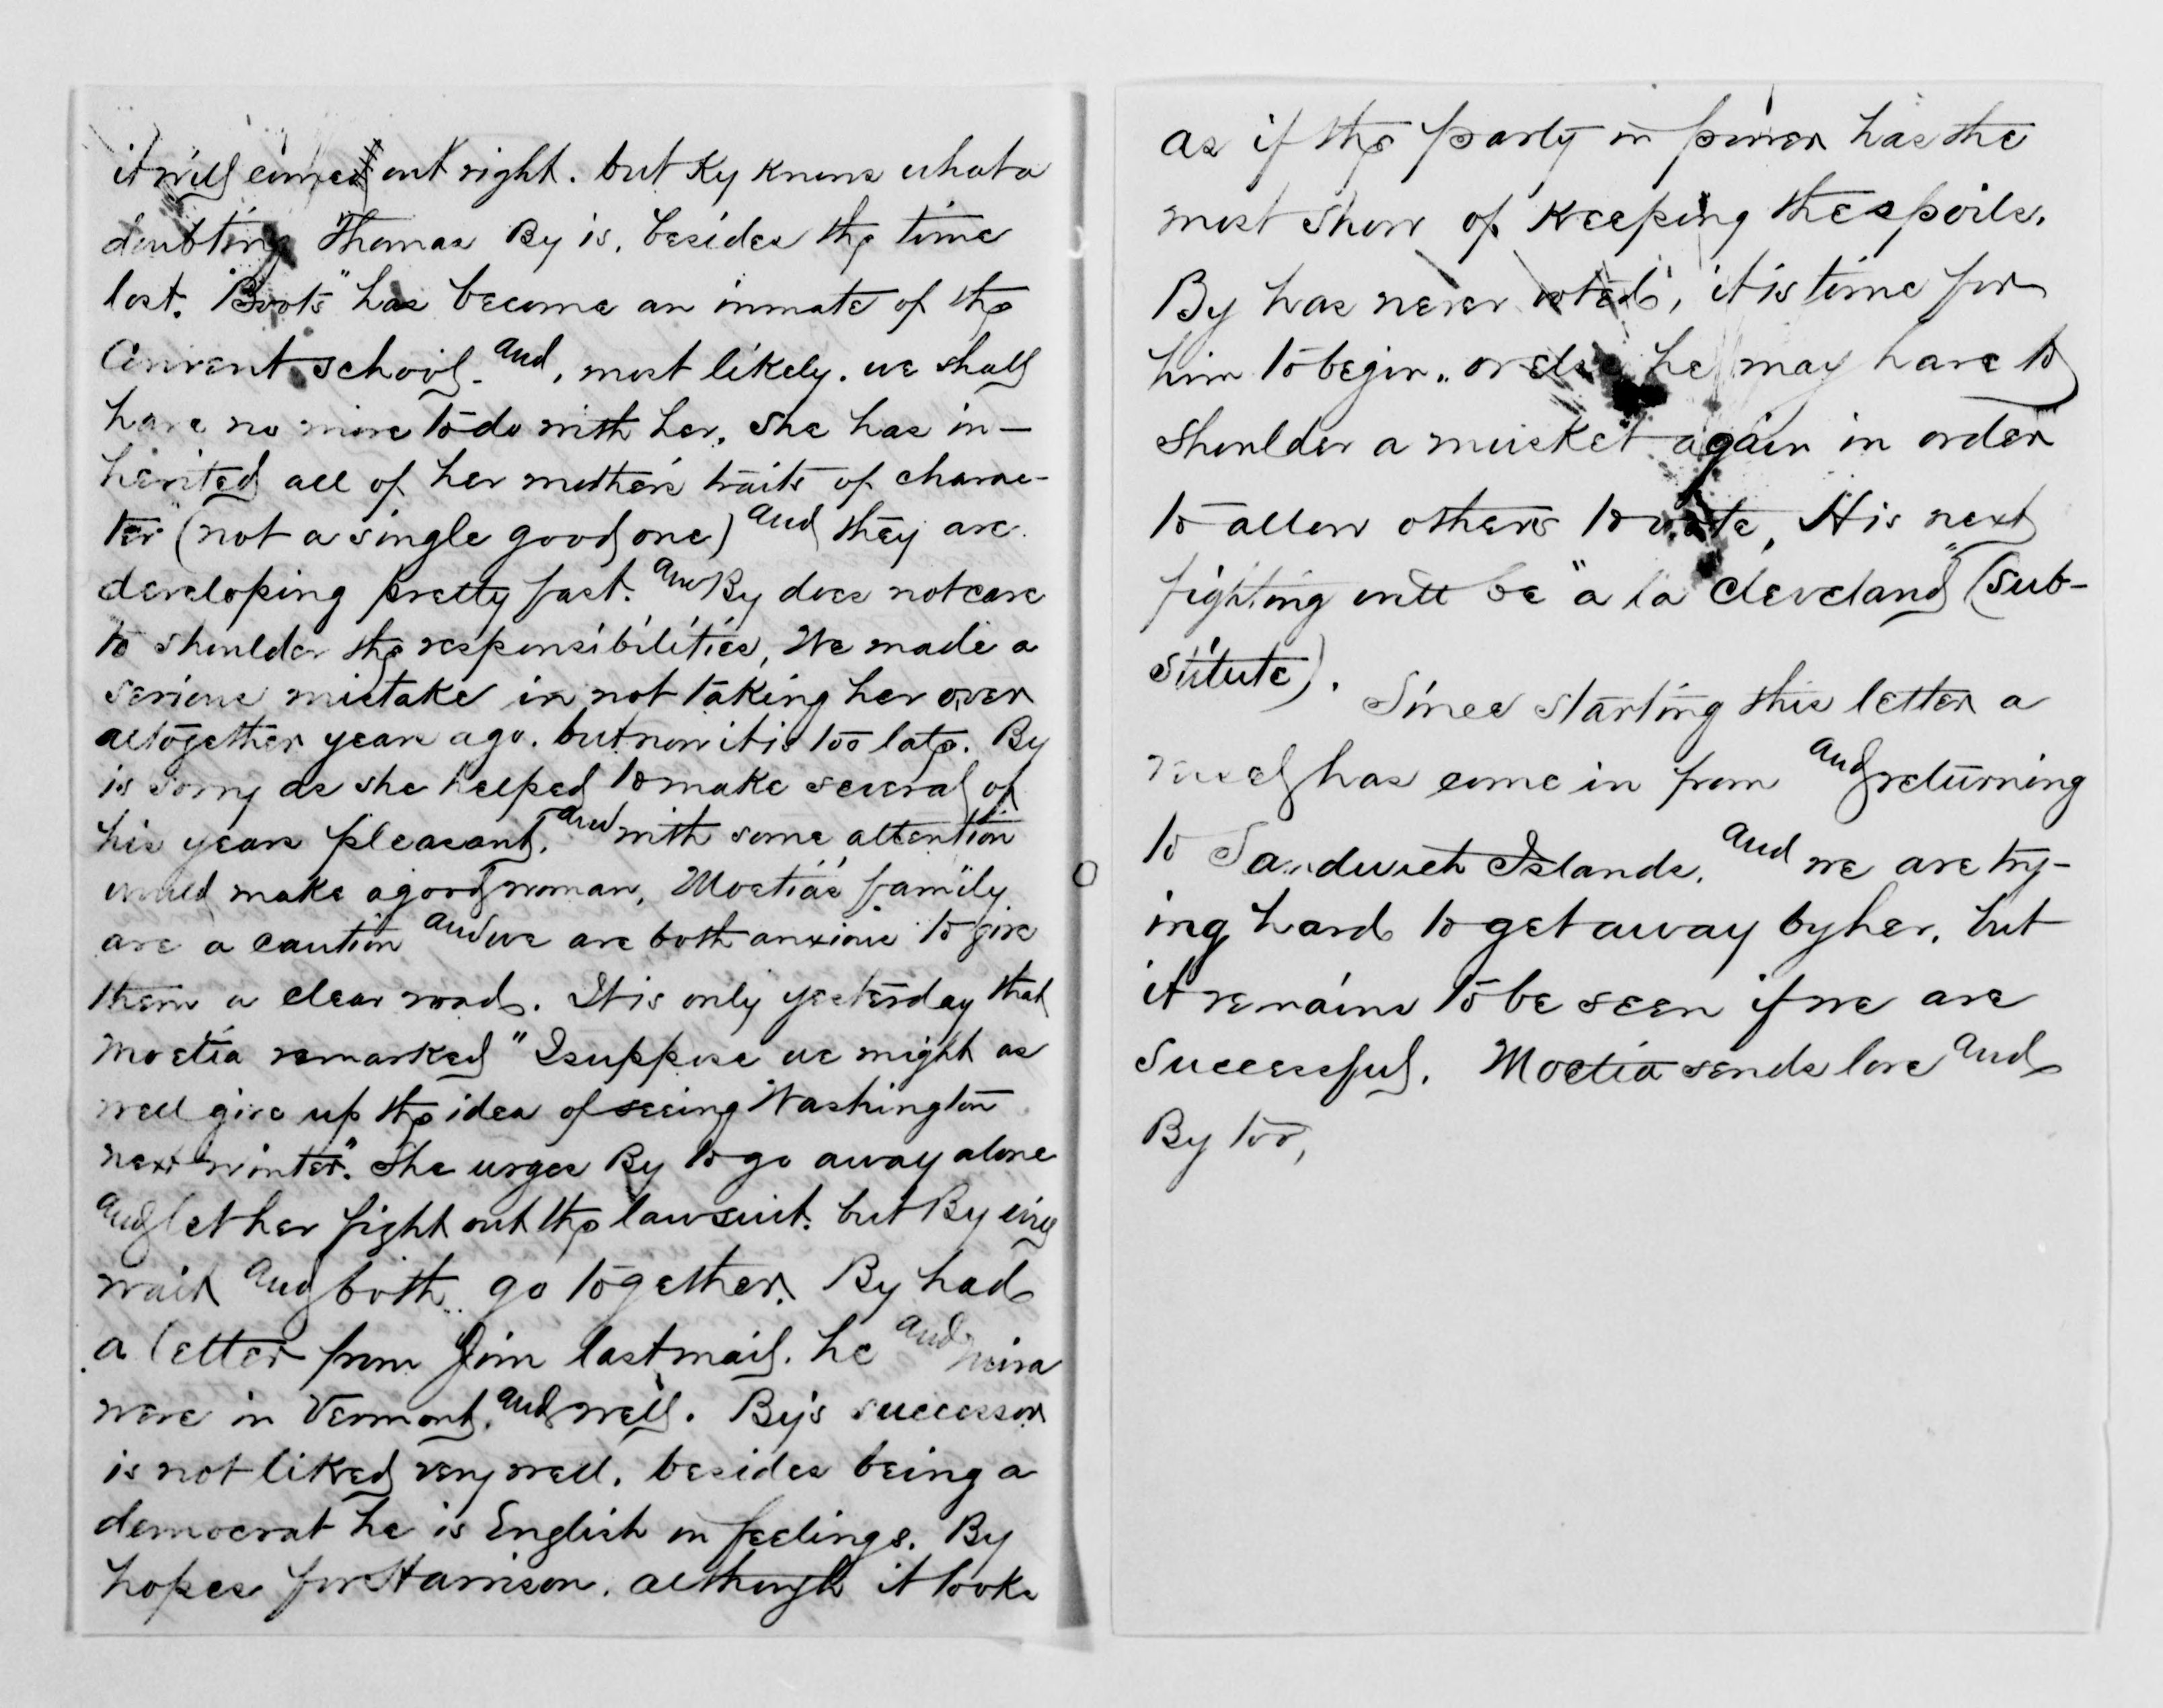 it will come out right. but Ky knows what a
doubting Thomas By is. besides the time
lost. "Boots" has become an inmate of the
Convent school. and, most likely. we shall
have no more to do with her. She has in-
herited all of her mother's traits of charac-
ter (not a single good one) and they are
developing pretty fast. and By does not care
to shoulder the responsibilities, We made a
serious mistake in not taking her over
altogether years ago. but now it is too late. By
is sorry as she helped to make several of
his years pleasant. and with some attention
would make a good woman. Moetia's family
are a caution and we are both anxious to give
them a clear road. It is only yesterday that
Moetia remarked "I suppose we might as
well give up the idea of seeing Washington
next winter". She urges By to go away alone
and let her fight out the lawsuit. but By will
wait and both go together. By had
a letter from Jim last mail. he and
were in Vermont. and well. By's successor
is not liked very well. besides being a
democrat he is English in feelings. By
hopes for Harrison. although it looks
as if the party in power has the
most show of keeping the spoils.
By has never voted, it is time for
him to begin. or else he may have to
shoulder a musket again in order
to allow others to vote, His next
fighting will be "a la Cleveland" (sub-
stitute).
Since starting this letter a
vessel has come in from and returning
to Sandwich Islands. and we are try-
ing hard to get away by her. but
it remains to be seen if we are
successful. Moetia sends love and
By too,